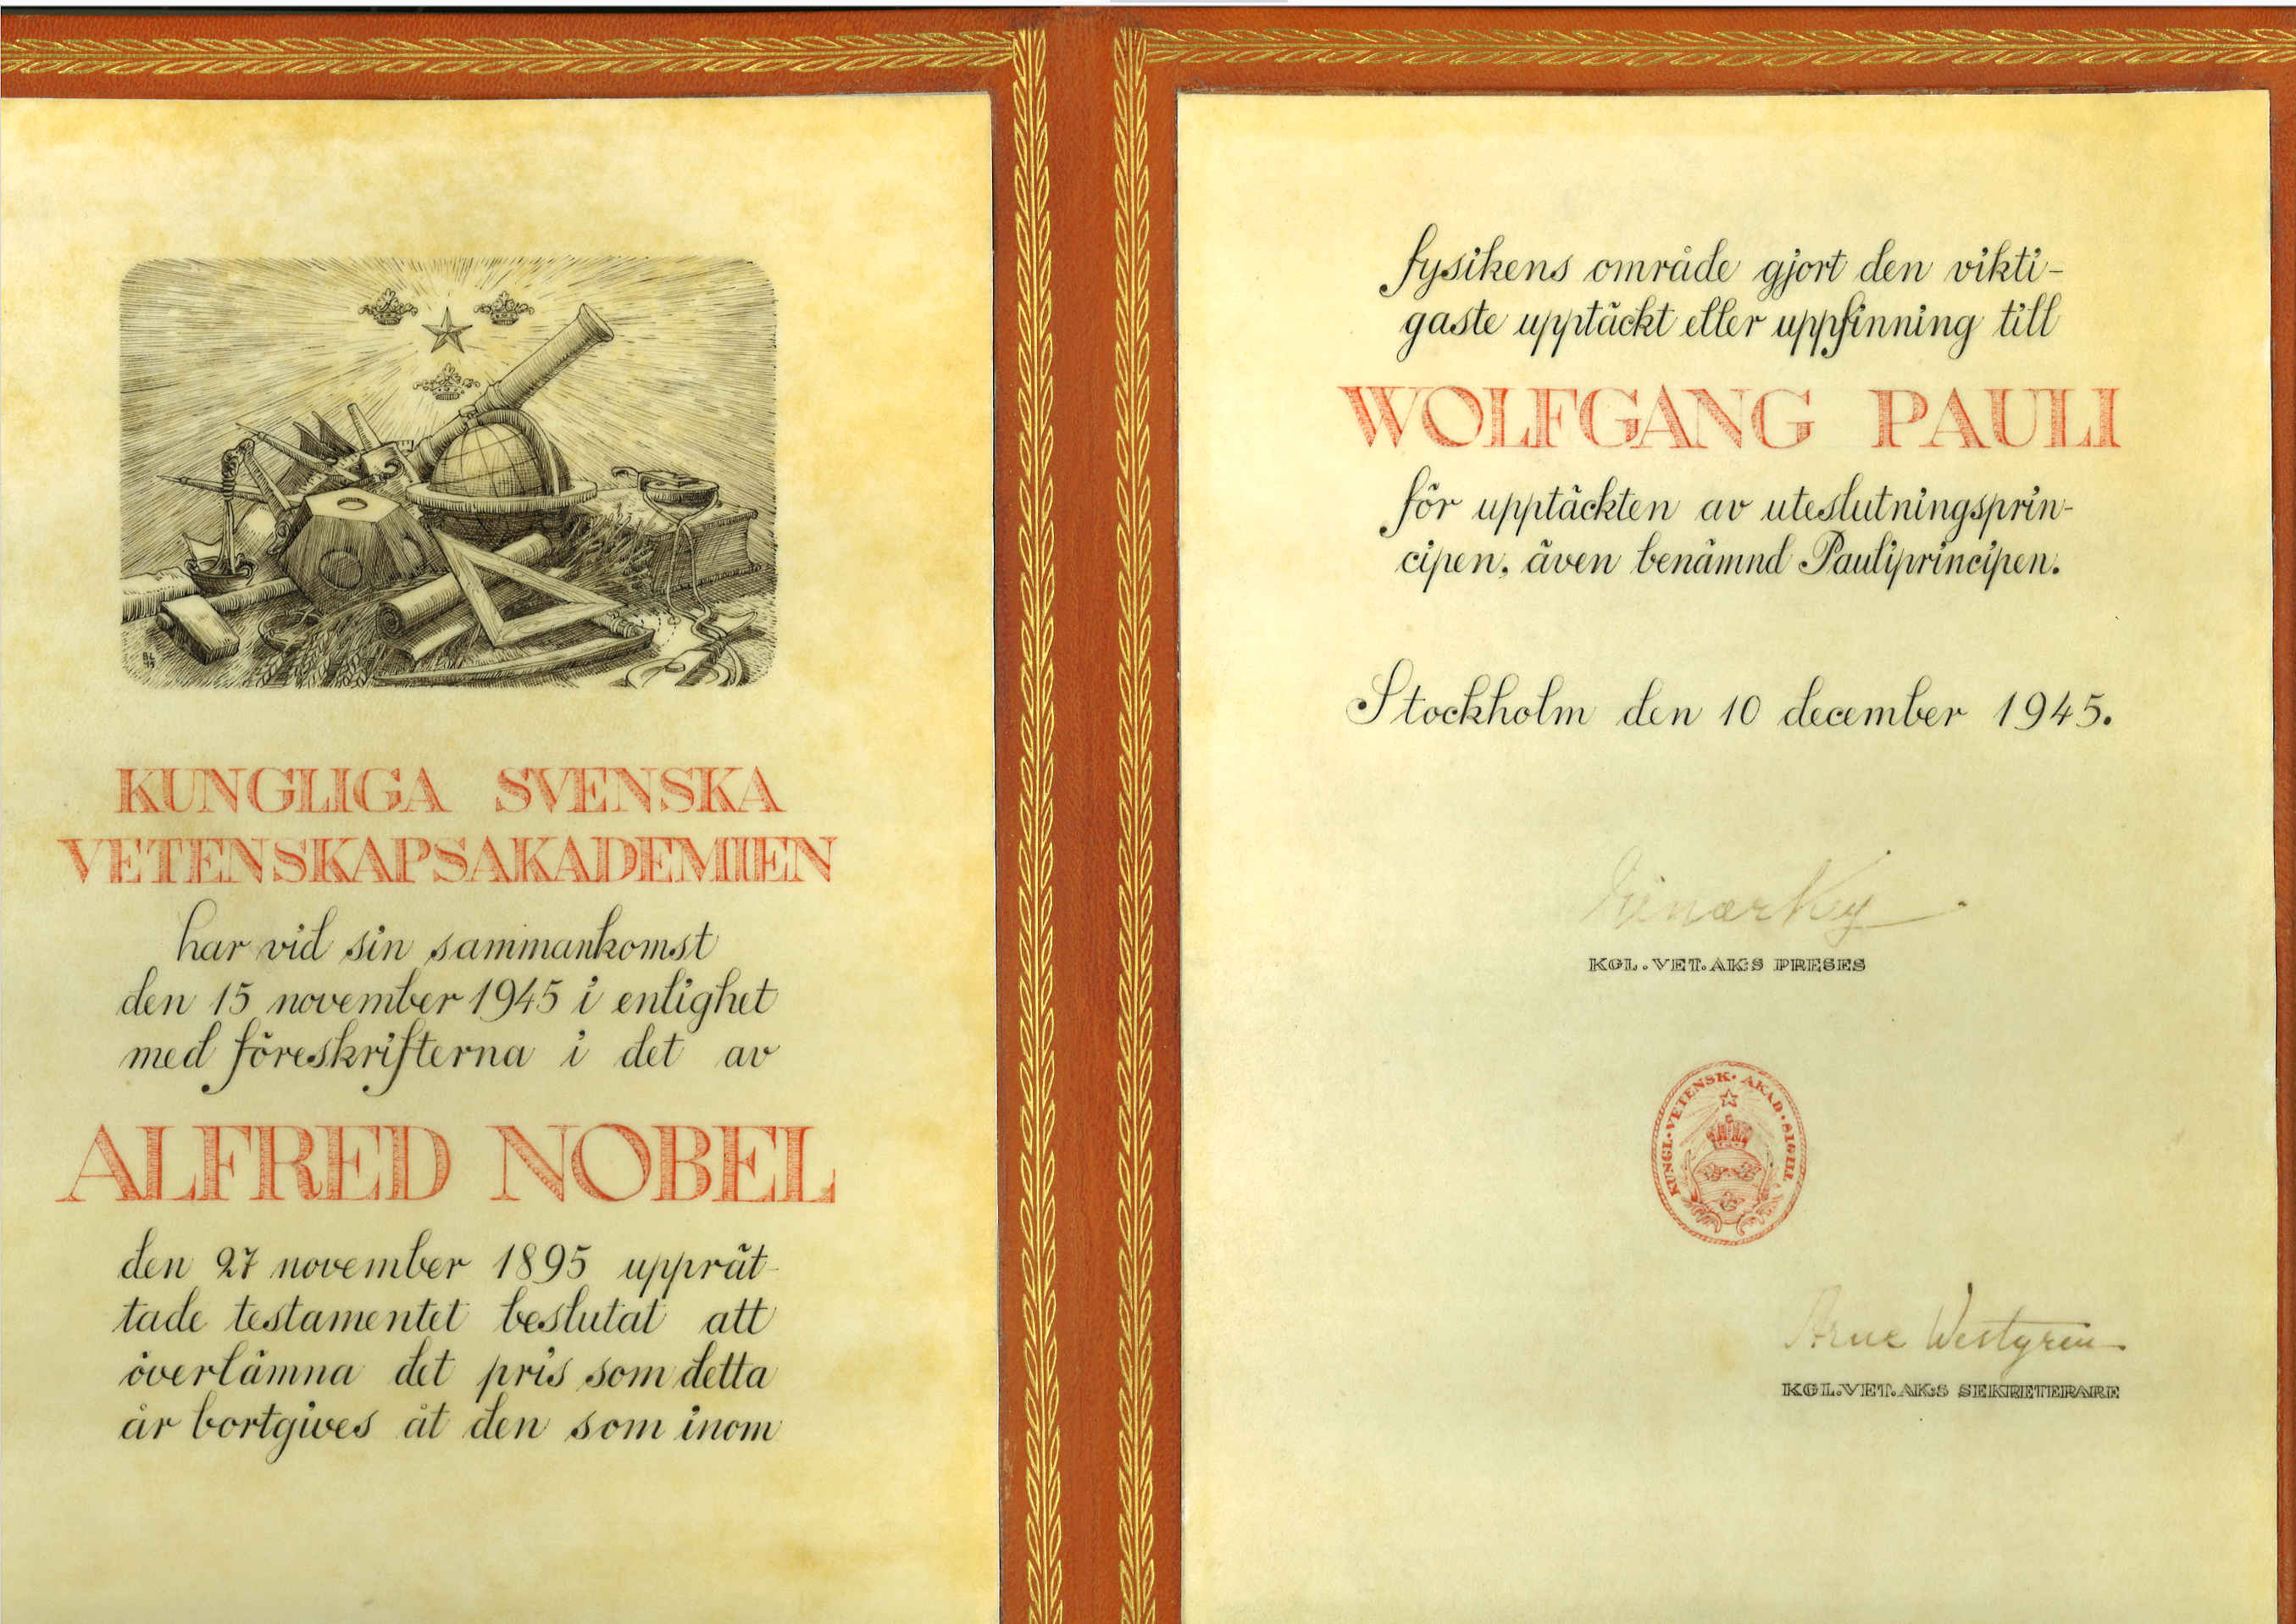 KUNGLIGA SVENSKA
VETENSKAPSAKADEMIEN
har vid sin sammankomst
den 15 november 1945 i enlighet
med föreskrifterna i det av
ALFRED NOBEL
den 27 november 1895 upprät-
tade testamentet beslutat att
överlämna det pris som detta
år bortgives åt den som inom
fysikens område gjort den vikti-
gaste upptäckt eller uppfinning till
WOLFGANG PAULI
för upptäckten av uteslutningsprin-
cipen, även benämnd Pauliprincipen.
Stockholm den 10 december 1945.
KGL. VET. AK:S PRESES
KUNGL. VETENSK. AKAD. SIGILL
Arne Westgren
KGL. VET. AK:S SEKRETERARE